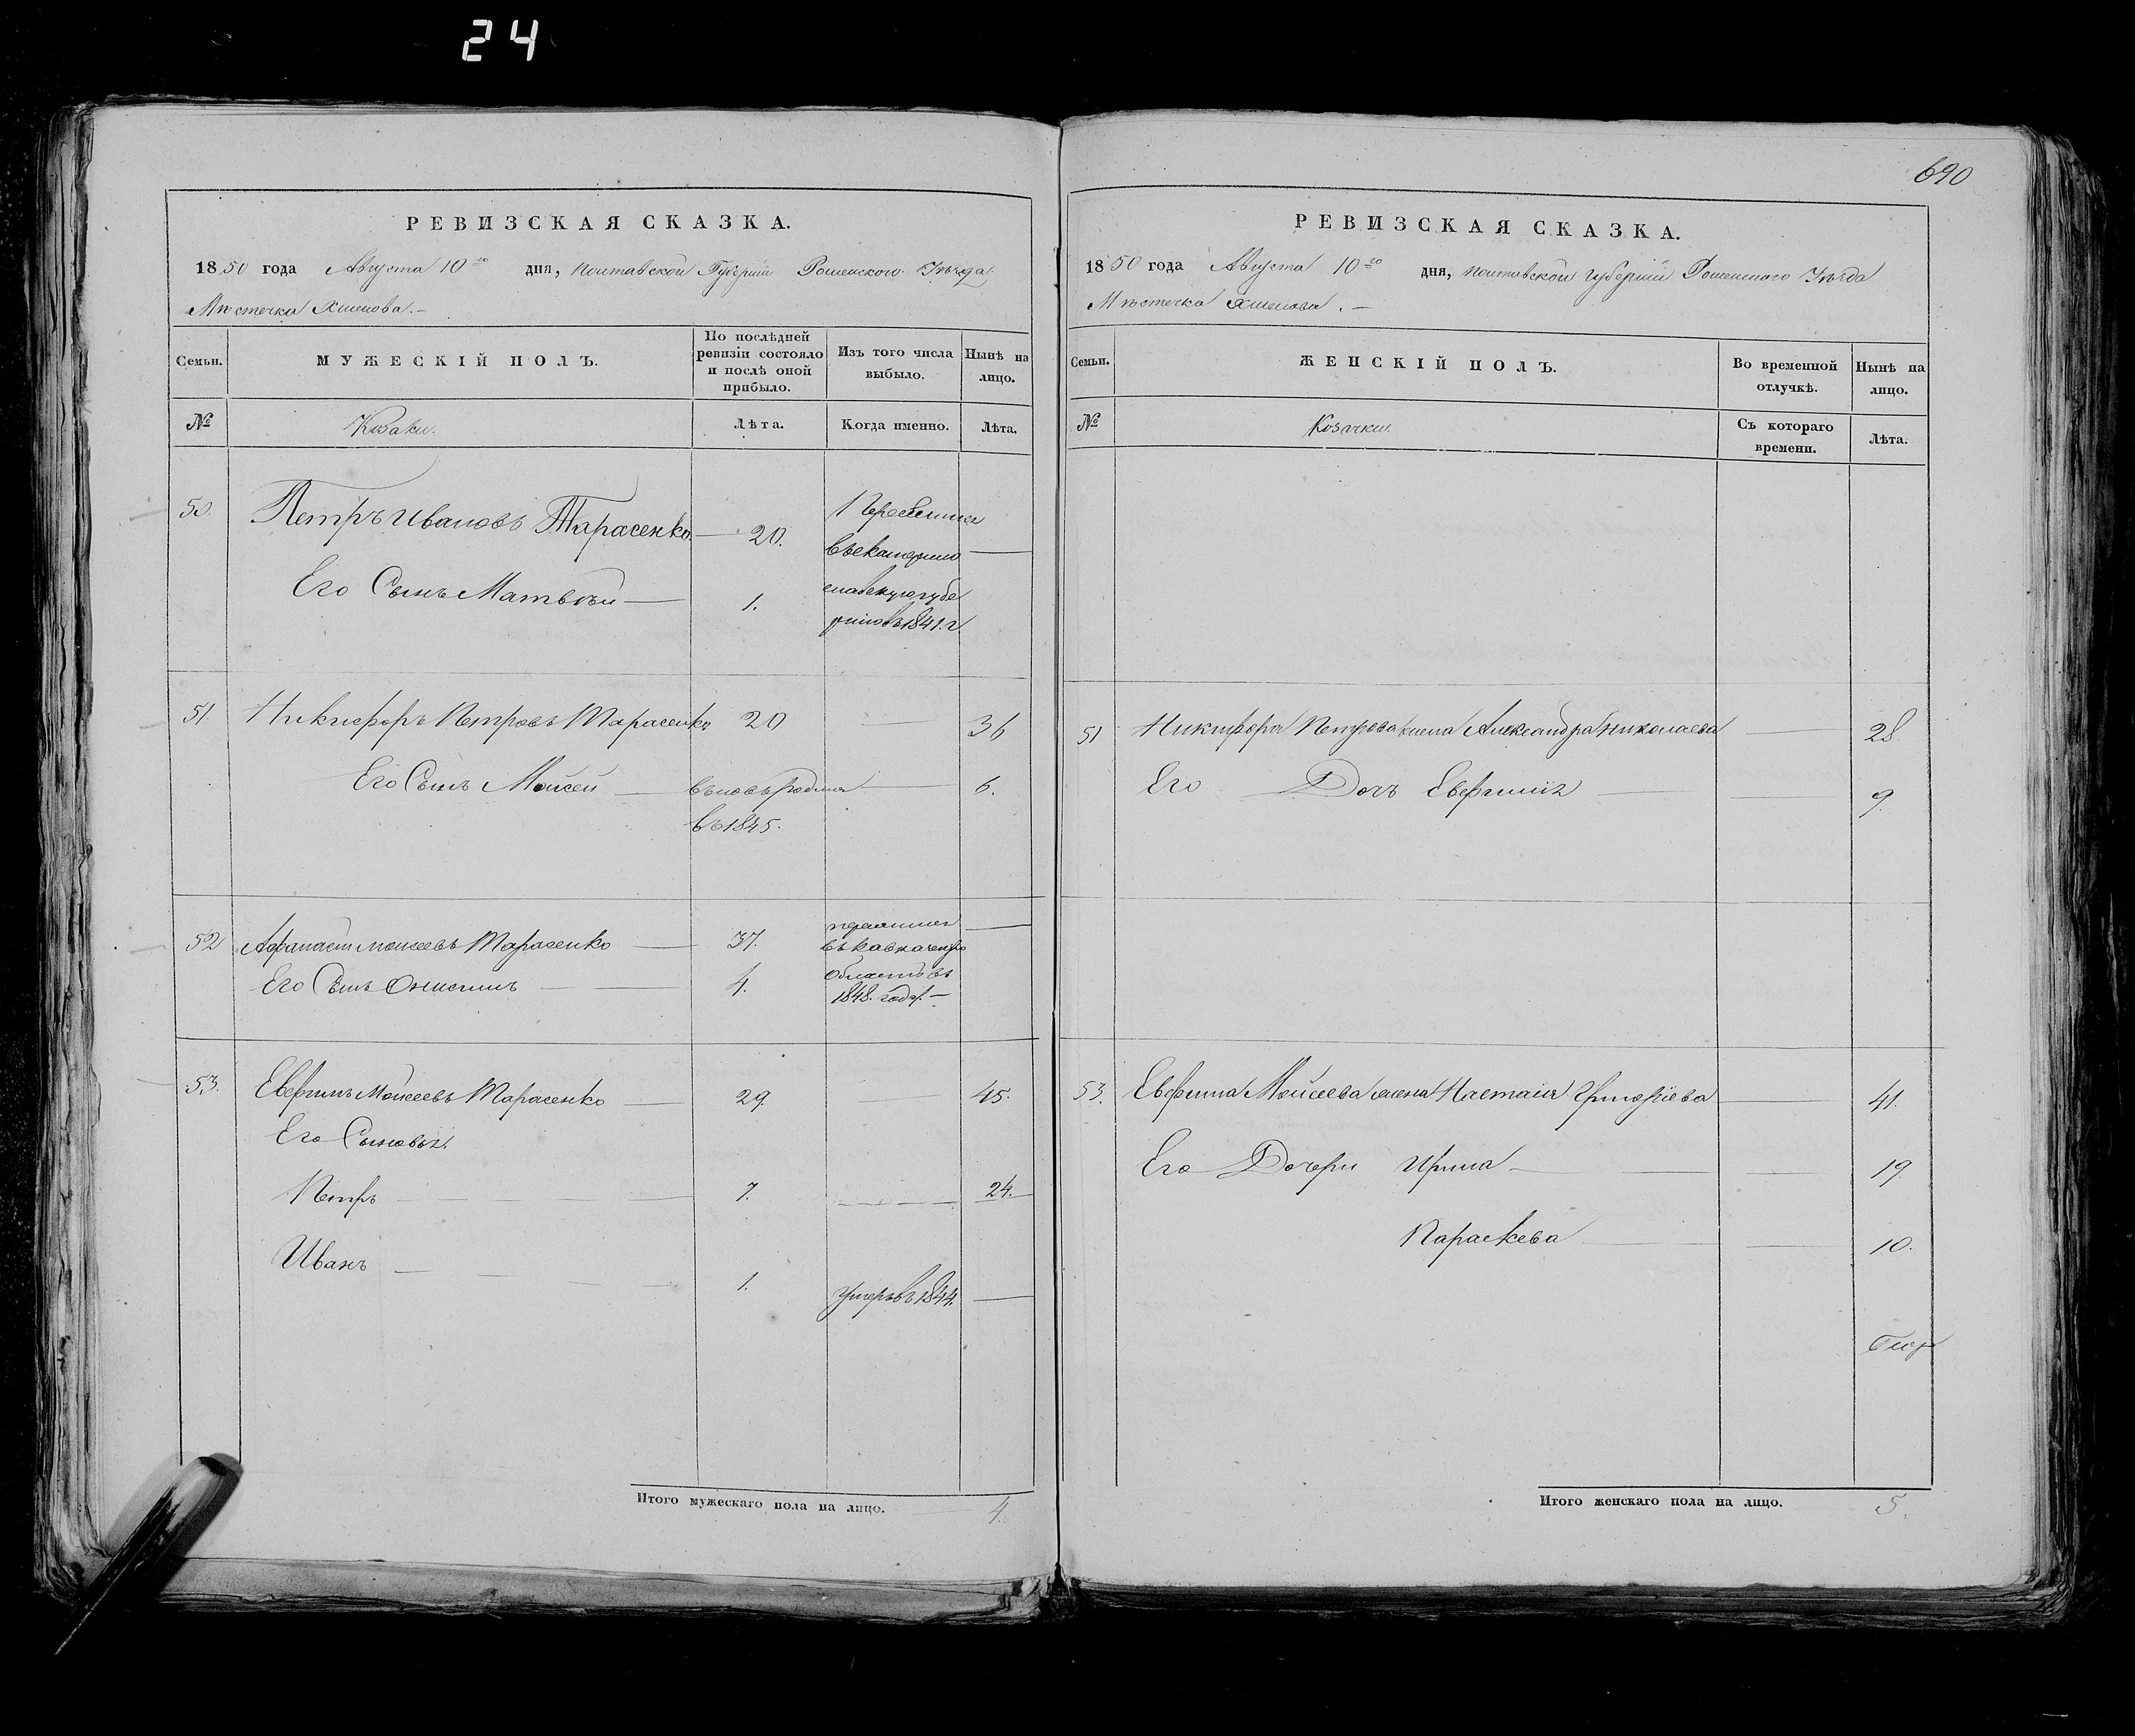 24
РЕВИЗСКАЯ СКАЗКА.
1850 года Августа 10го дня, Полтавской Губерніи Роменского Уѣзда
Мѣстечка
Семьи.
МУЖЕСКІЙ ПОЛЪ.
По послѣдней ревизіи состояло и послѣ оной прибыло.
Изъ того числа выбыло.
Нынѣ на лицо.
№
Козаки.
Лѣта.
Когда именно.
Лѣта.
50. Петръ Ивановъ Тарасенко 20.
Его Сынъ Матвѣй 1.
въ Екатерино
славскую губе
рнію въ 1841. г.
51. Никифоръ Петровъ Тарасенко 20 36
Его Сынъ Моисей вновь родился 6.
въ 1845.
52 Афанасій Моисеевъ Тарасенко 37.
Его Сынъ Онисимъ 4.
въ Кавказскую
область въ
1848. году.
53. Евфимъ Моисеевъ Тарасенко 29. 45.
Его Сыновья
Петръ 7. 24.
Иванъ 1. умеръ въ 1844.
Итого мужескаго пола на лицо. 4.
690
РЕВИЗСКАЯ СКАЗКА.
1850 года Августа 10го дня, Полтавской Губерніи Роменского Уѣзда
Мѣстечка
Семьи.
ЖЕНСКІЙ ПОЛЪ.
Во временной отлучкѣ.
Нынѣ на лицо.
№
Козачки.
Съ котораго времени.
Лѣта.
51 Никифора Петрова жена Александра Николаева 28.
Его Дочь Евфимія 9.
53. Евфима Моисеева жена Настасія Григоріева 41.
Его Дочери Ирина 19.
Параскева 10.
Итого женскаго пола на лицо. 5.